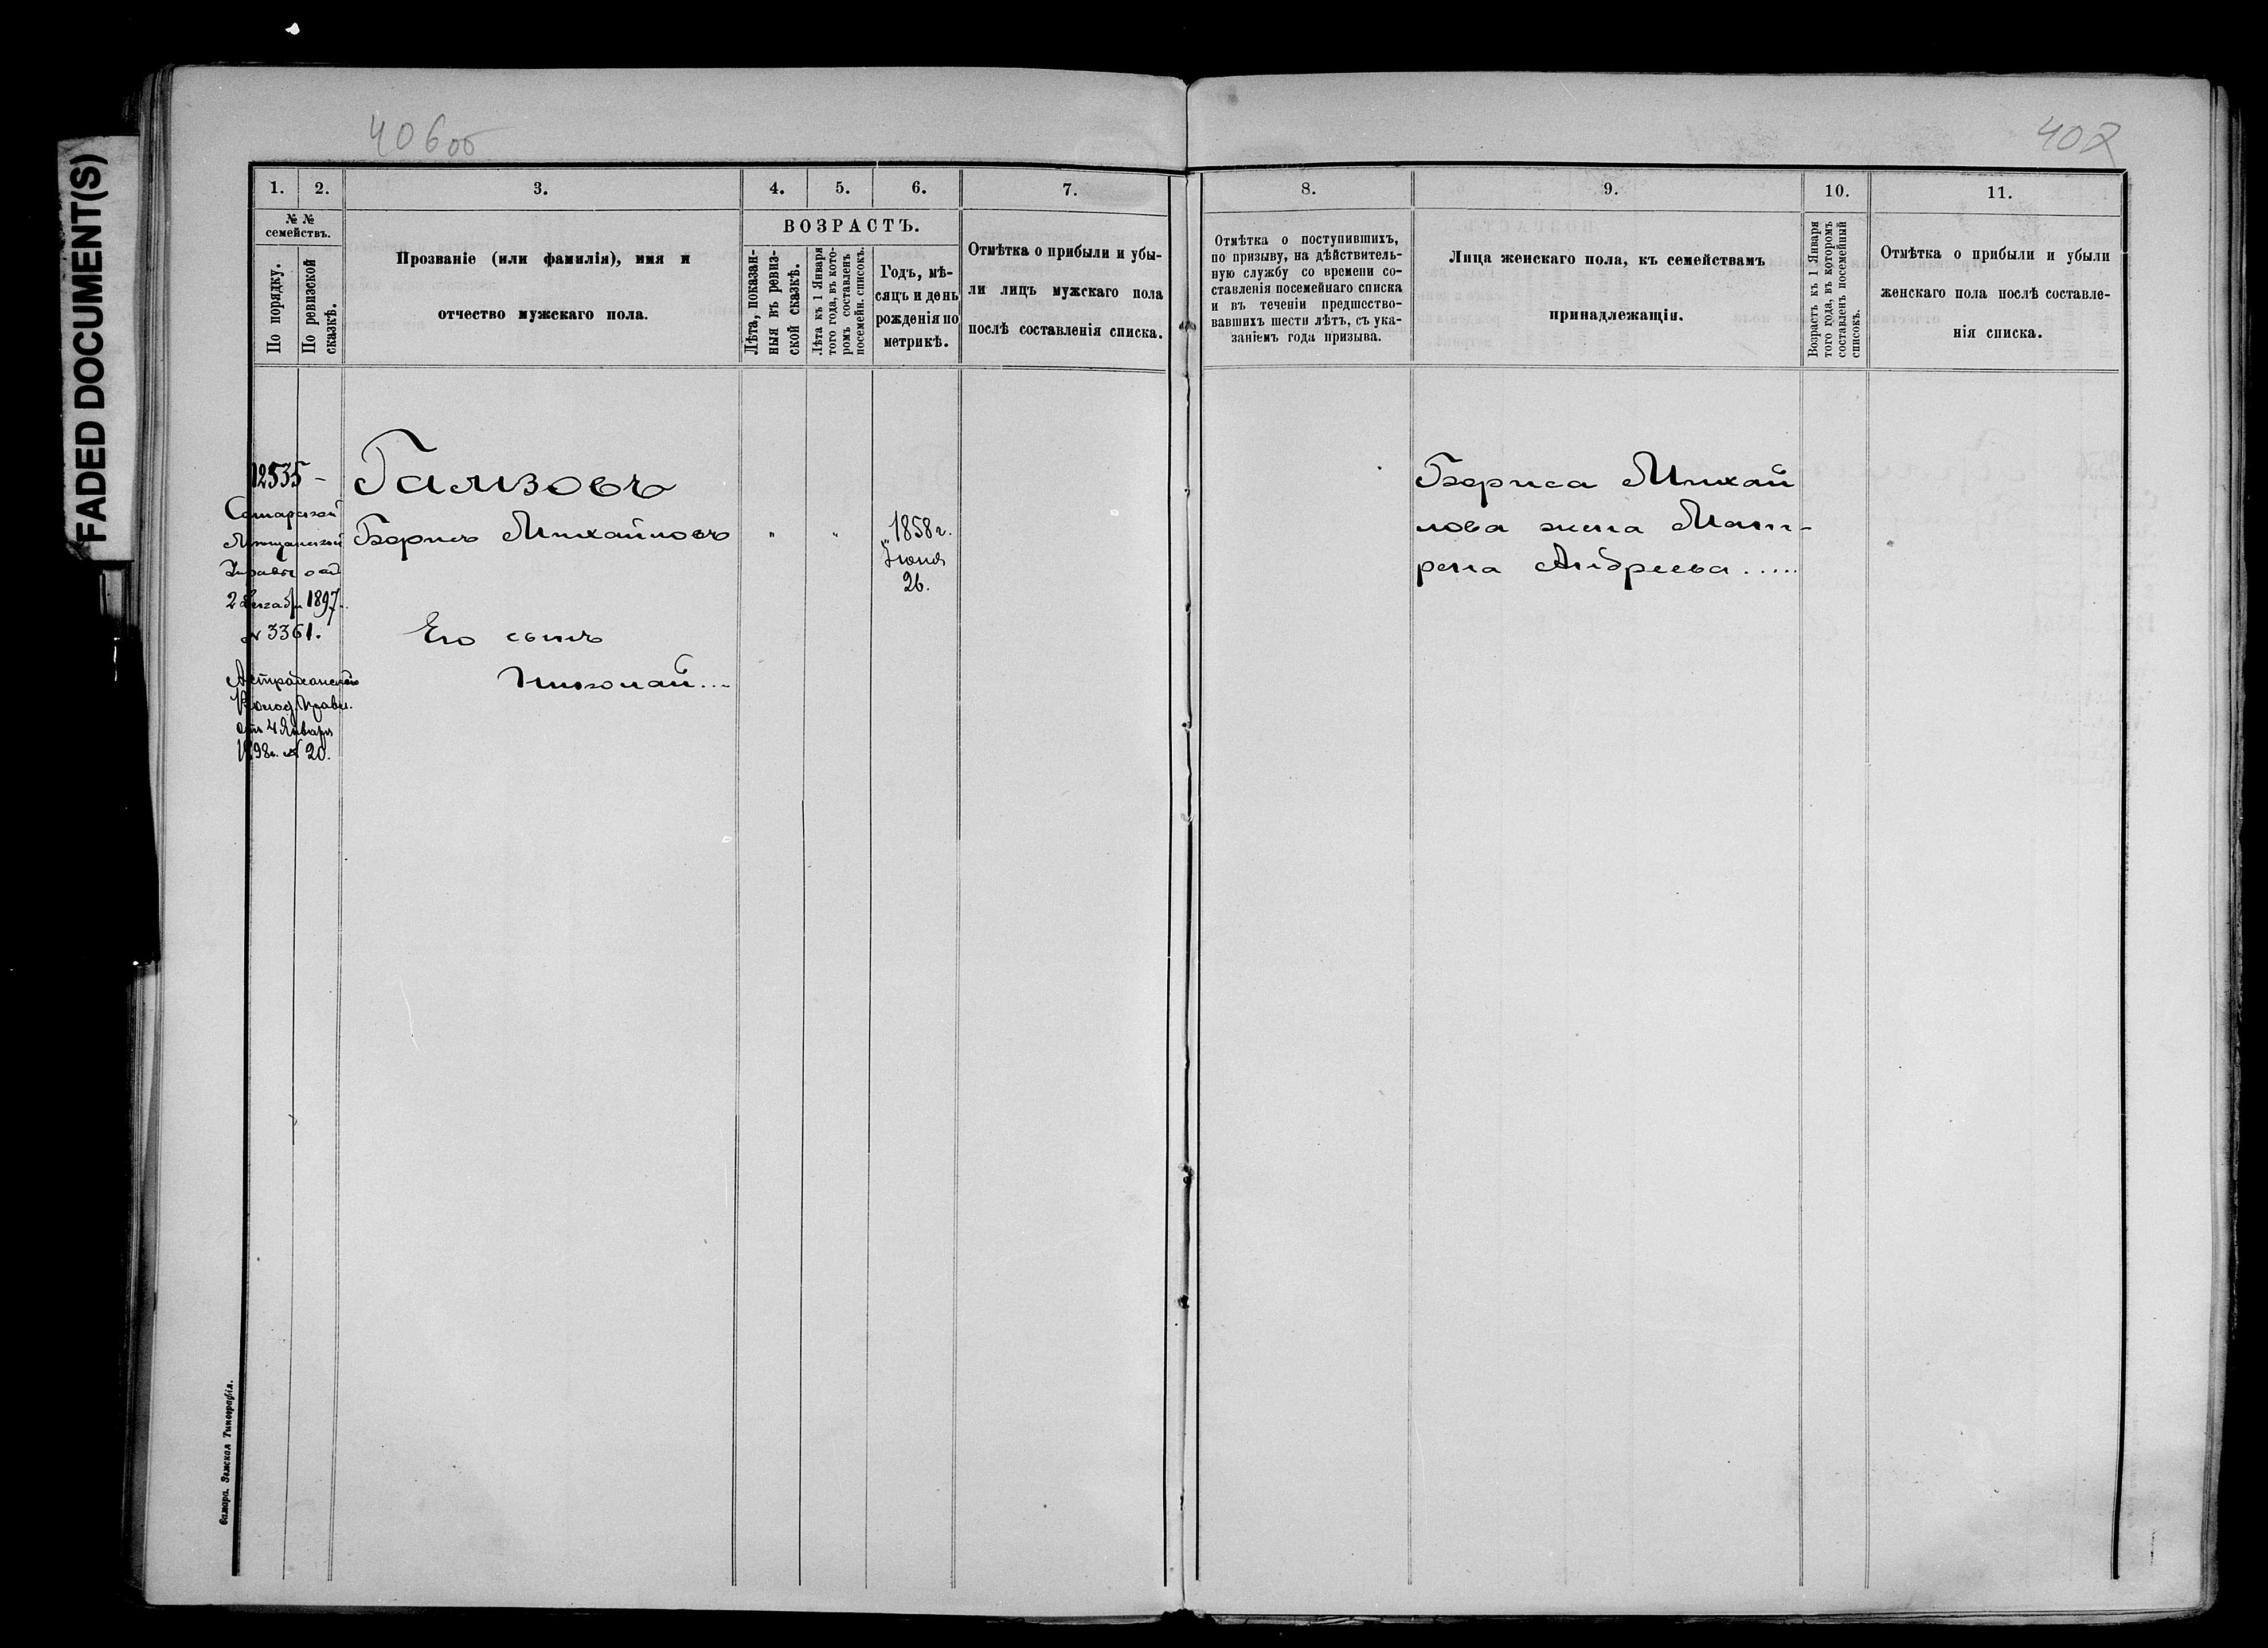 FADED DOCUMENT(S)
406об
402
1.
2.
3.
4.
5.
6.
7.
8.
9.
10.
11.
№ №
семействъ.
По порядку.
По ревизской
сказкѣ.
Прозваніе (или фамилія), имя и
отчество мужскаго пола.
ВОЗРАСТЪ.
Лѣта, показан-
ныя въ ревиз-
ской сказкѣ.
Лѣта къ 1 Января
того года, въ кото-
ромъ составленъ
посемейн. списокъ.
Годъ, мѣ-
сяцъ и день
рожденія по
метрикѣ.
Отмѣтка о прибыли и убы-
ли лицъ мужскаго пола
послѣ составленія списка.
Отмѣтка о поступившихъ,
по призыву, на дѣйствитель-
ную службу со времени со-
ставленія посемейнаго списка
и въ теченіи предшество-
вавшихъ шести лѣтъ, съ ука-
заніемъ года призыва.
Лица женскаго пола, къ семействамъ
принадлежащія.
Возрастъ къ 1 Января
того года, въ которомъ
составленъ посемейный
списокъ.
Отмѣтка о прибыли и убыли
женскаго пола послѣ составле-
нія списка.
12535 -
Самарской
Мѣщанской
Управы отъ
2 Декабря 1897 г.
№ 3361.
Астраханской
Волос. Правл.
отъ 4 Января
1898 г. № 20.
Гализовъ
Борисъ Михайловъ " "
1858 г.
Іюня
26.
Его сынъ
Николай...
Бориса Михай
лова жена Мат-
рена Андреева.....
Самара. Земская Типографія.